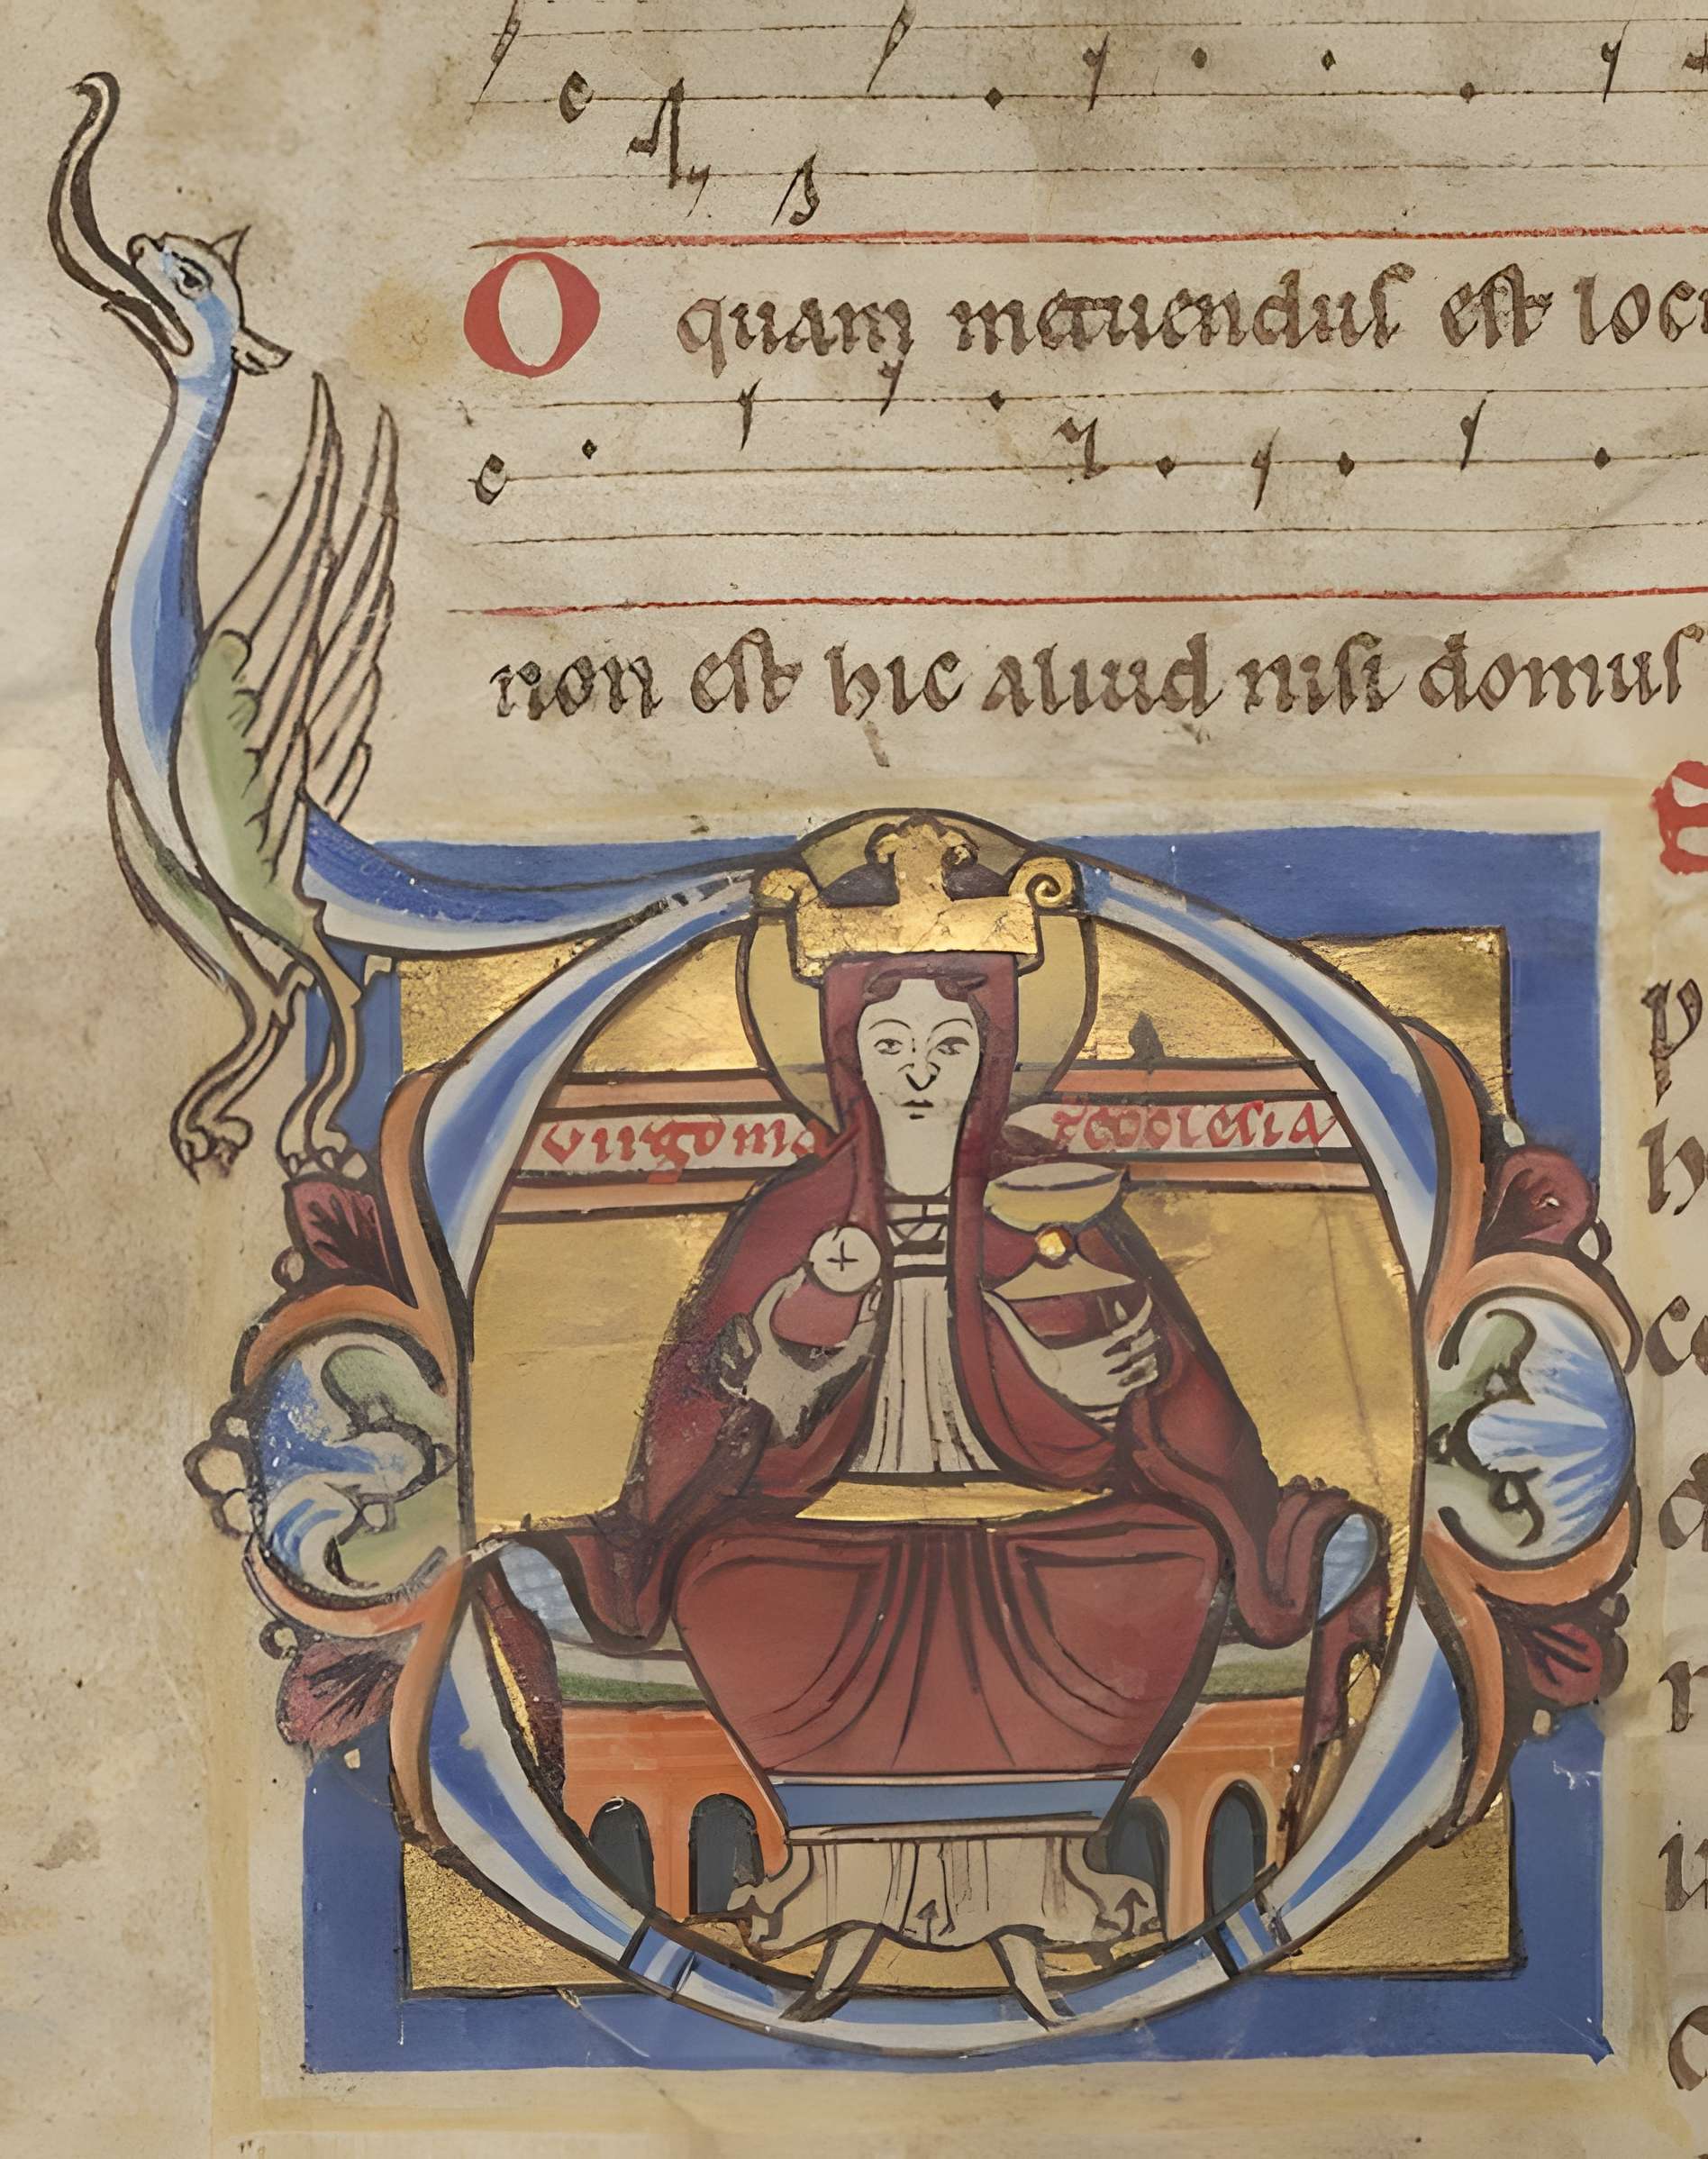 O quam metuendus est locu
non est hic aliud nisi domus
virgo ma ecclesia